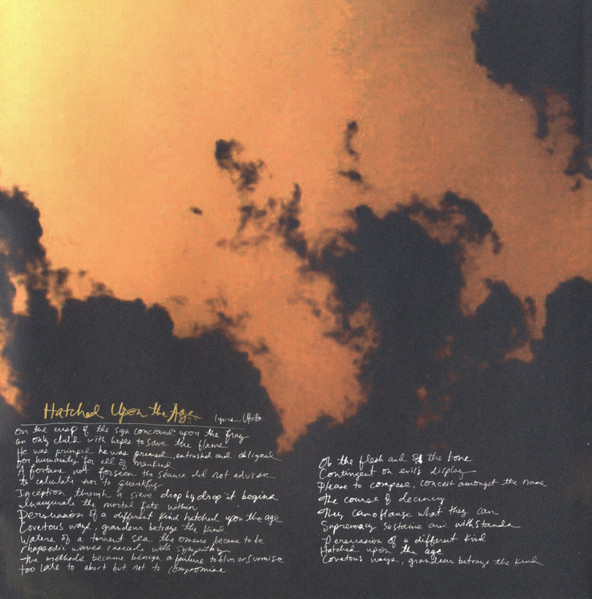 Hatched Upon the Age lyrics
On the cusp of the sign conceived upon the fray
an only child with hopes to save the flame
He was primped he was preened, entrusted and obligated
for humanity for all of mankind
A fortune not forseen the séance did not advise
to calculate nor to quantify
Inception through a sieve drop by drop it begins
Inaugurate the mortal fate within
Persuasion of a different kind hatched upon the age
Covetous ways, grandeur betrays the kind
Waters of a torrent sea the omens became to be
rhapsodic waves cascade with sympathy
The methods became benign a failure to blur or surmise
too late to abort but not to compromise
Of the flesh and of the bone
Contingent on evil's display
Please to compose, conceit amongst the name
The course of decency
They camouflause what they can
Supremacy sustains and withstands
Persuasion of a different kind
Hatched upon the age
Covetous ways, grandeur betrays the kind